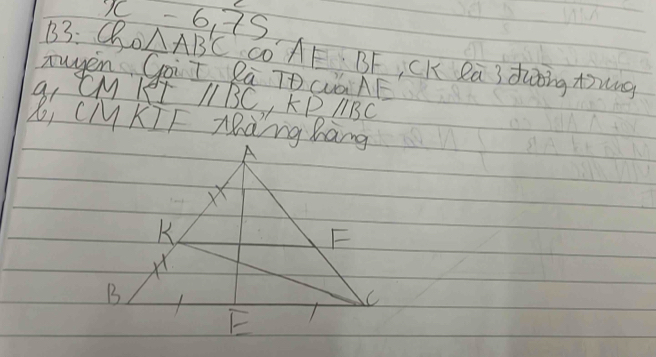 x - 6,75
B3: Cho △ABC có AE, BF, CK là 3 đường trung
tuyến. Gọi I là TĐ của AE
a, CM KI // BC, KF // BC
b, CM KIF thẳng hàng
A
K F
B E C